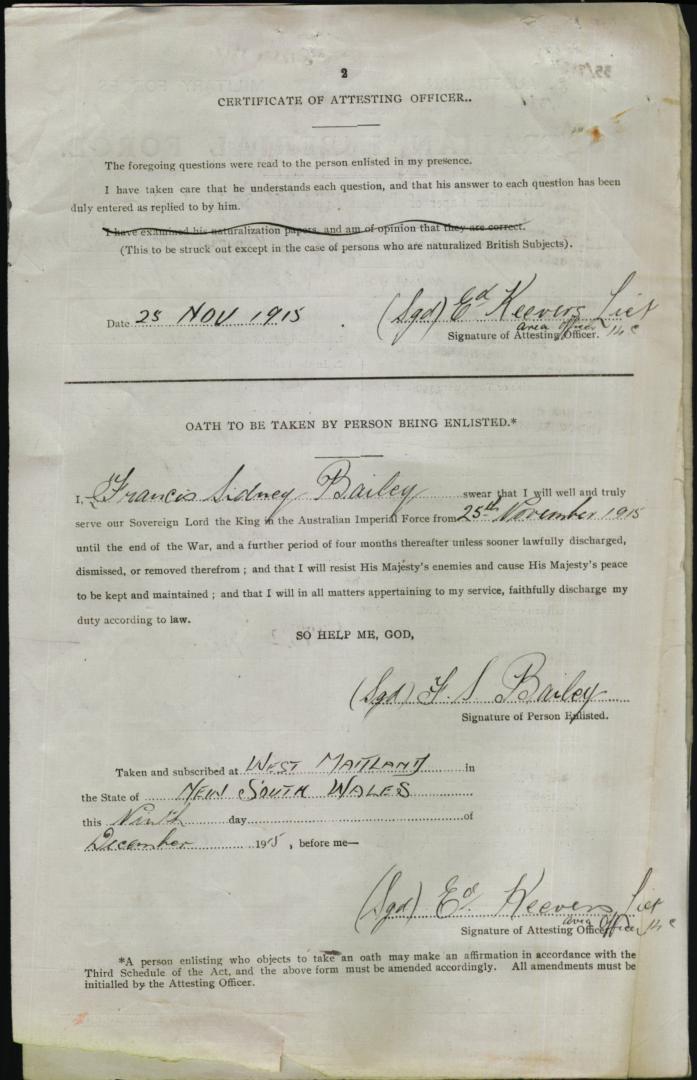 2
CERTIFICATE OF ATTESTING OFFICER..
The foregoing questions were read to the person enlisted in my presence.
I have taken care that he understands each question, and that his answer to each question has been
duly entered as replied to by him.
I have examined his naturalization papers, and am of opinion that they are correct.
(This to be struck out except in the case of persons who are naturalized British Subjects).
Date 25 NOV 1915 (Sgd) Ed Keevers Liet
area officer 14c
Signature of Attesting Officer.
OATH TO BE TAKEN BY PERSON BEING ENLISTED.*
I, Francis Sidney Bailey swear that I will well and truly
serve our Sovereign Lord the King in the Australian Imperial Force from 25th November 1915
until the end of the War, and a further period of four months thereafter unless sooner lawfully discharged,
dismissed, or removed therefrom ; and that I will resist His Majesty's enemies and cause His Majesty's peace
to be kept and maintained ; and that I will in all matters appertaining to my service, faithfully discharge my
duty according to law.
SO HELP ME, GOD,
(Sgd) F. S Bailey
Signature of Person Enlisted.
Taken and subscribed at WEST MAITLAND in
the State of NEW SOUTH WALES
this Ninth day of
December 1915 , before me—
(Sgd) Ed Keevers Liet
area Officer 14c
Signature of Attesting Officer
*A person enlisting who objects to take an oath may make an affirmation in accordance with the
Third Schedule of the Act, and the above form must be amended accordingly. All amendments must be
initialled by the Attesting Officer.